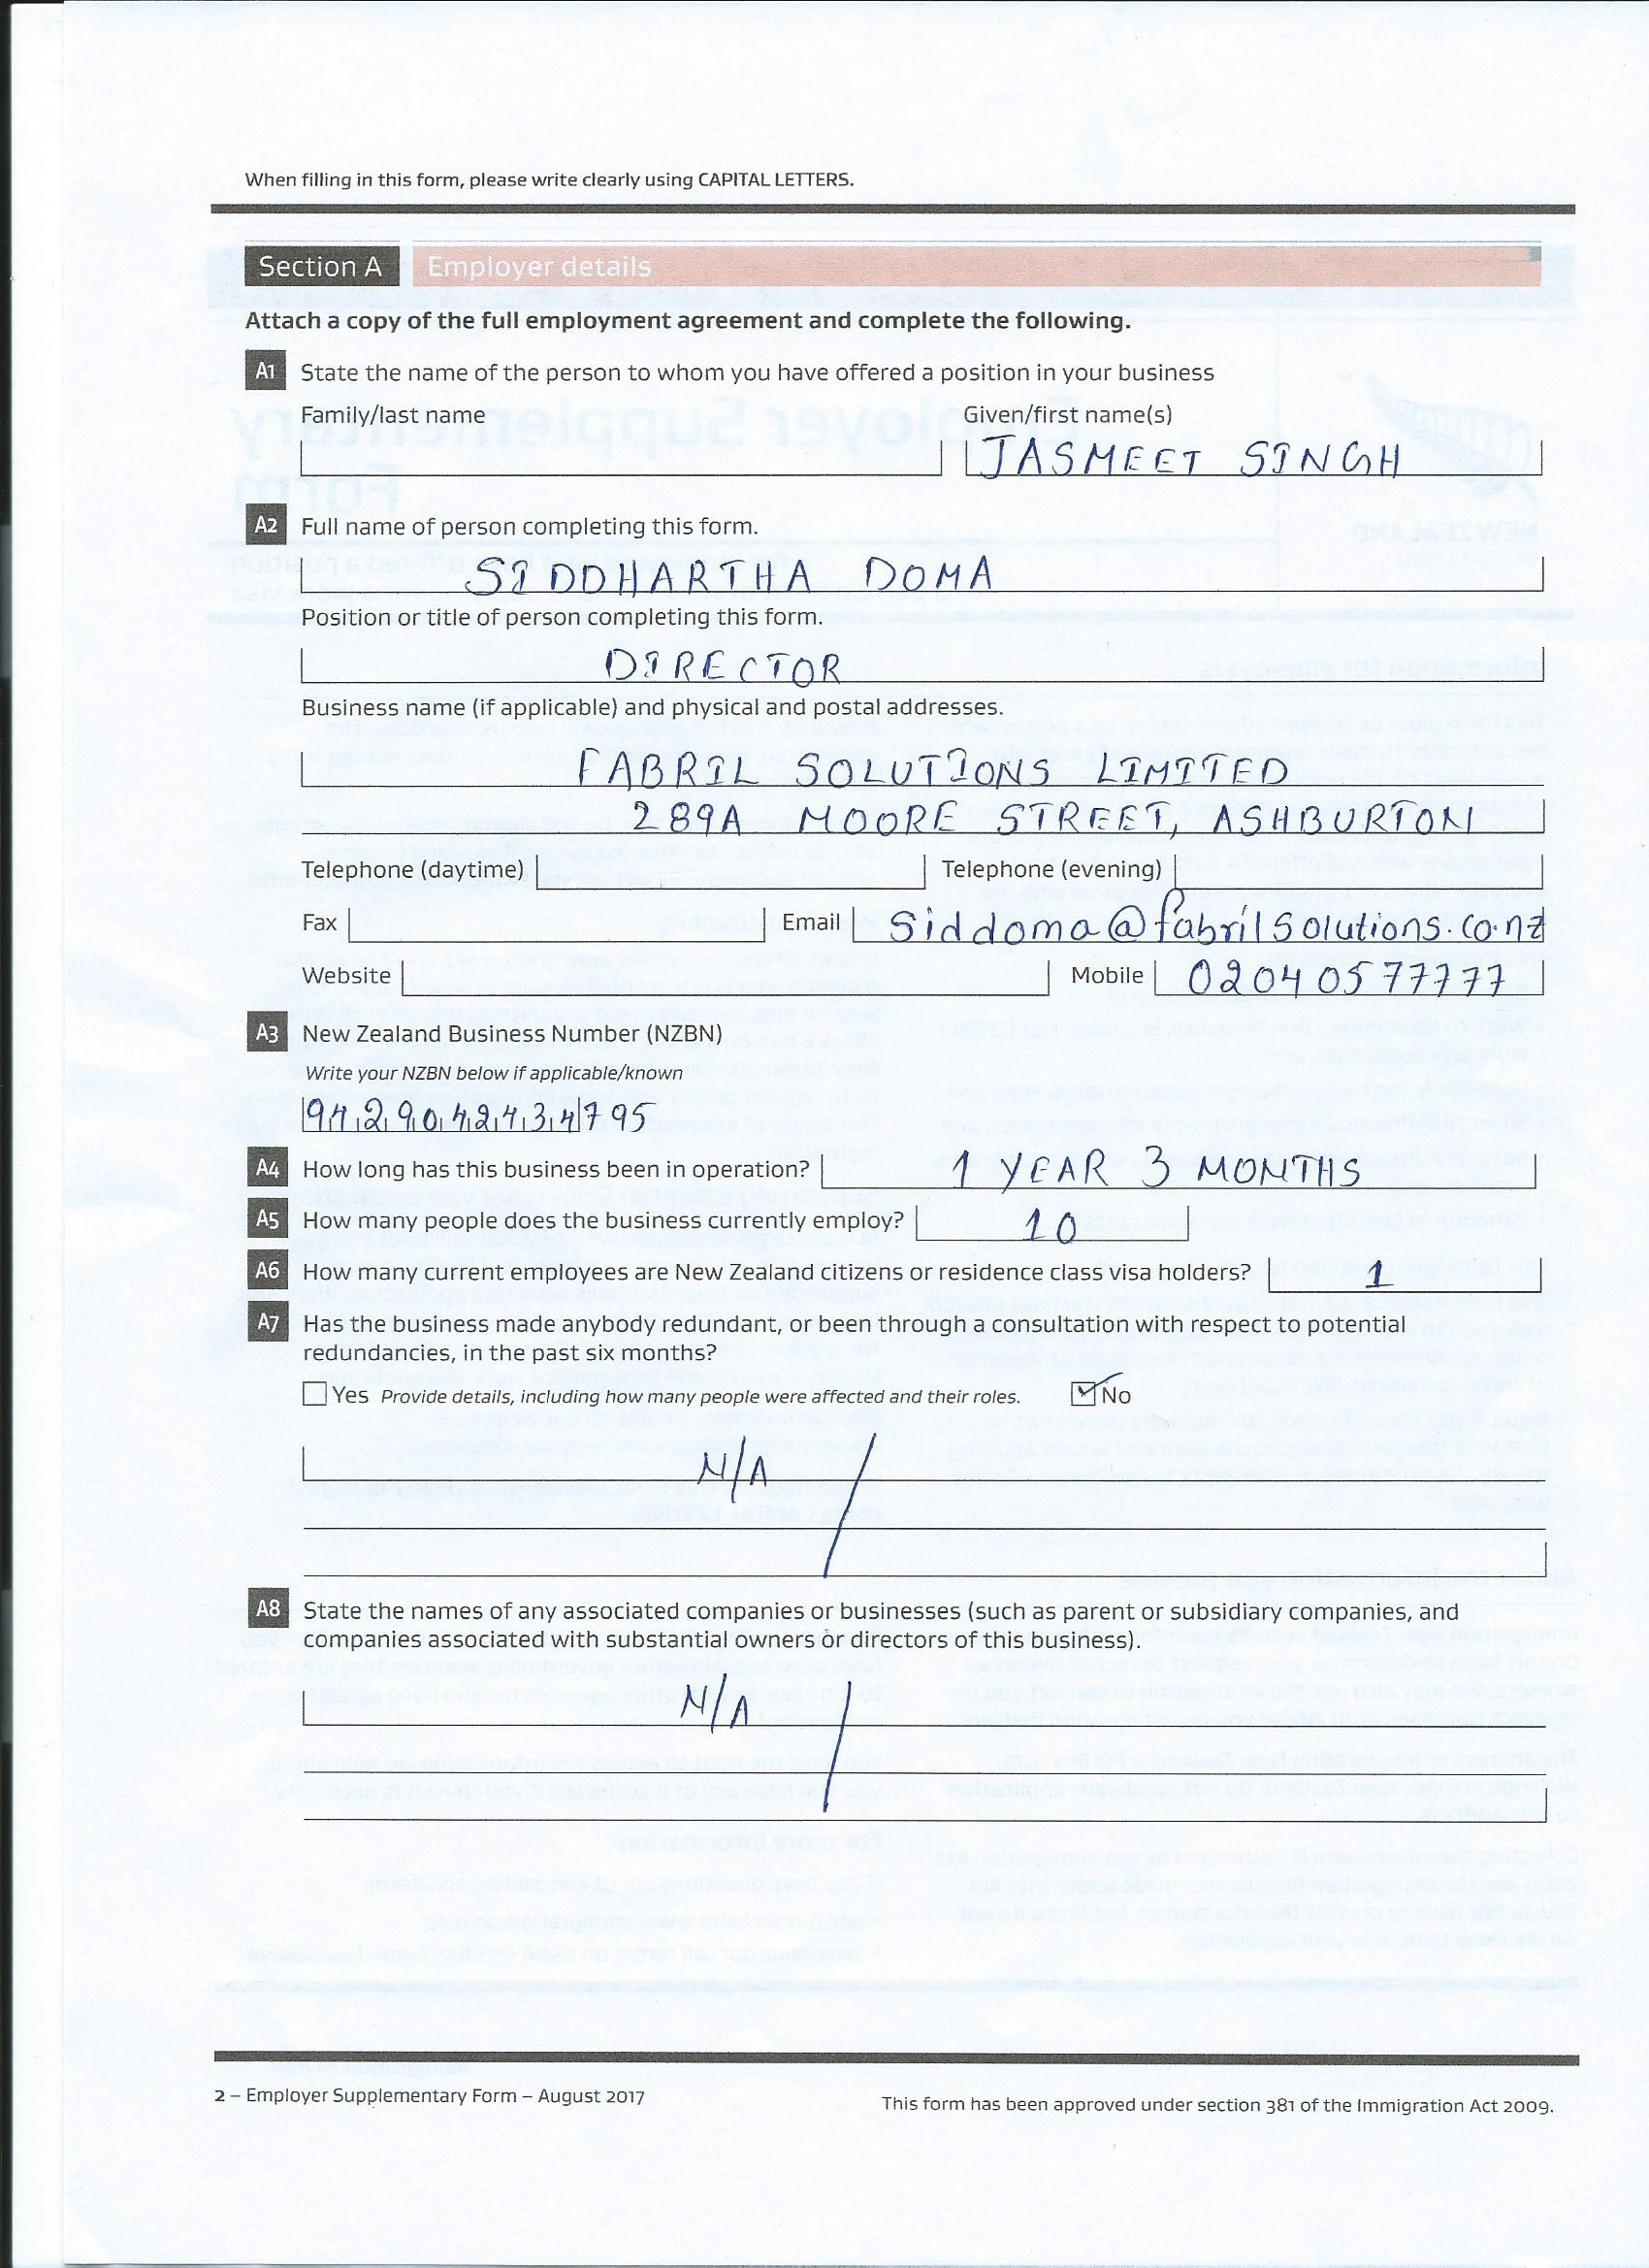 When filling in this form, please write clearly using CAPITAL LETTERS.
Section A Employer details
Attach a copy of the full employment agreement and complete the following.
A1 State the name of the person to whom you have offered a position in your business
Family/last name Given/first name(s)
JASMEET SINGH
A2 Full name of person completing this form.
SIDDHARTHA DOMA
Position or title of person completing this form.
DIRECTOR
Business name (if applicable) and physical and postal addresses.
FABRIL SOLUTIONS LIMITED
289A MOORE STREET, ASHBURTON
Telephone (daytime) Telephone (evening)
Fax Email Siddoma@fabrilsolutions.co.nz
Website Mobile 02040577777
A3 New Zealand Business Number (NZBN)
Write your NZBN below if applicable/known
9429042434795
A4 How long has this business been in operation? 1 YEAR 3 MONTHS
A5 How many people does the business currently employ? 10
A6 How many current employees are New Zealand citizens or residence class visa holders? 1
A7 Has the business made anybody redundant, or been through a consultation with respect to potential
redundancies, in the past six months?
Yes Provide details, including how many people were affected and their roles. No
N/A
A8 State the names of any associated companies or businesses (such as parent or subsidiary companies, and
companies associated with substantial owners or directors of this business).
N/A
2 – Employer Supplementary Form – August 2017 This form has been approved under section 381 of the Immigration Act 2009.